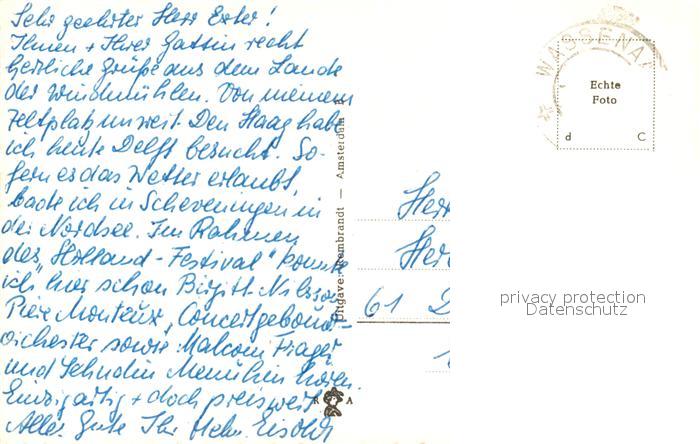 Sehr geehrter Herr Exter!
Ihnen + Ihrer Gattin recht
herzliche Grüße aus dem Lande
der Windmühlen. Von meinem
Zeltplatz unweit Den Haag habe
ich heute Delft besucht. So-
fern es das Wetter erlaubt,
bade ich in Scheveningen in
der Nordsee. Im Rahmen
des „Holland-Festival" konnte
ich hier schon Birgitt Nilsson,
Piere Monteux, Concertgebouw-
orchester sowie Malcom Frager
und Jehudin Menuhin hören.
Einzigartig + doch preiswert
Alles Gute Ihr Helm.
Uitgave: Rembrandt — Amsterdam
R A
WASSENA
Echte
Foto
d C
Herr
Her
61
privacy protection
Datenschutz